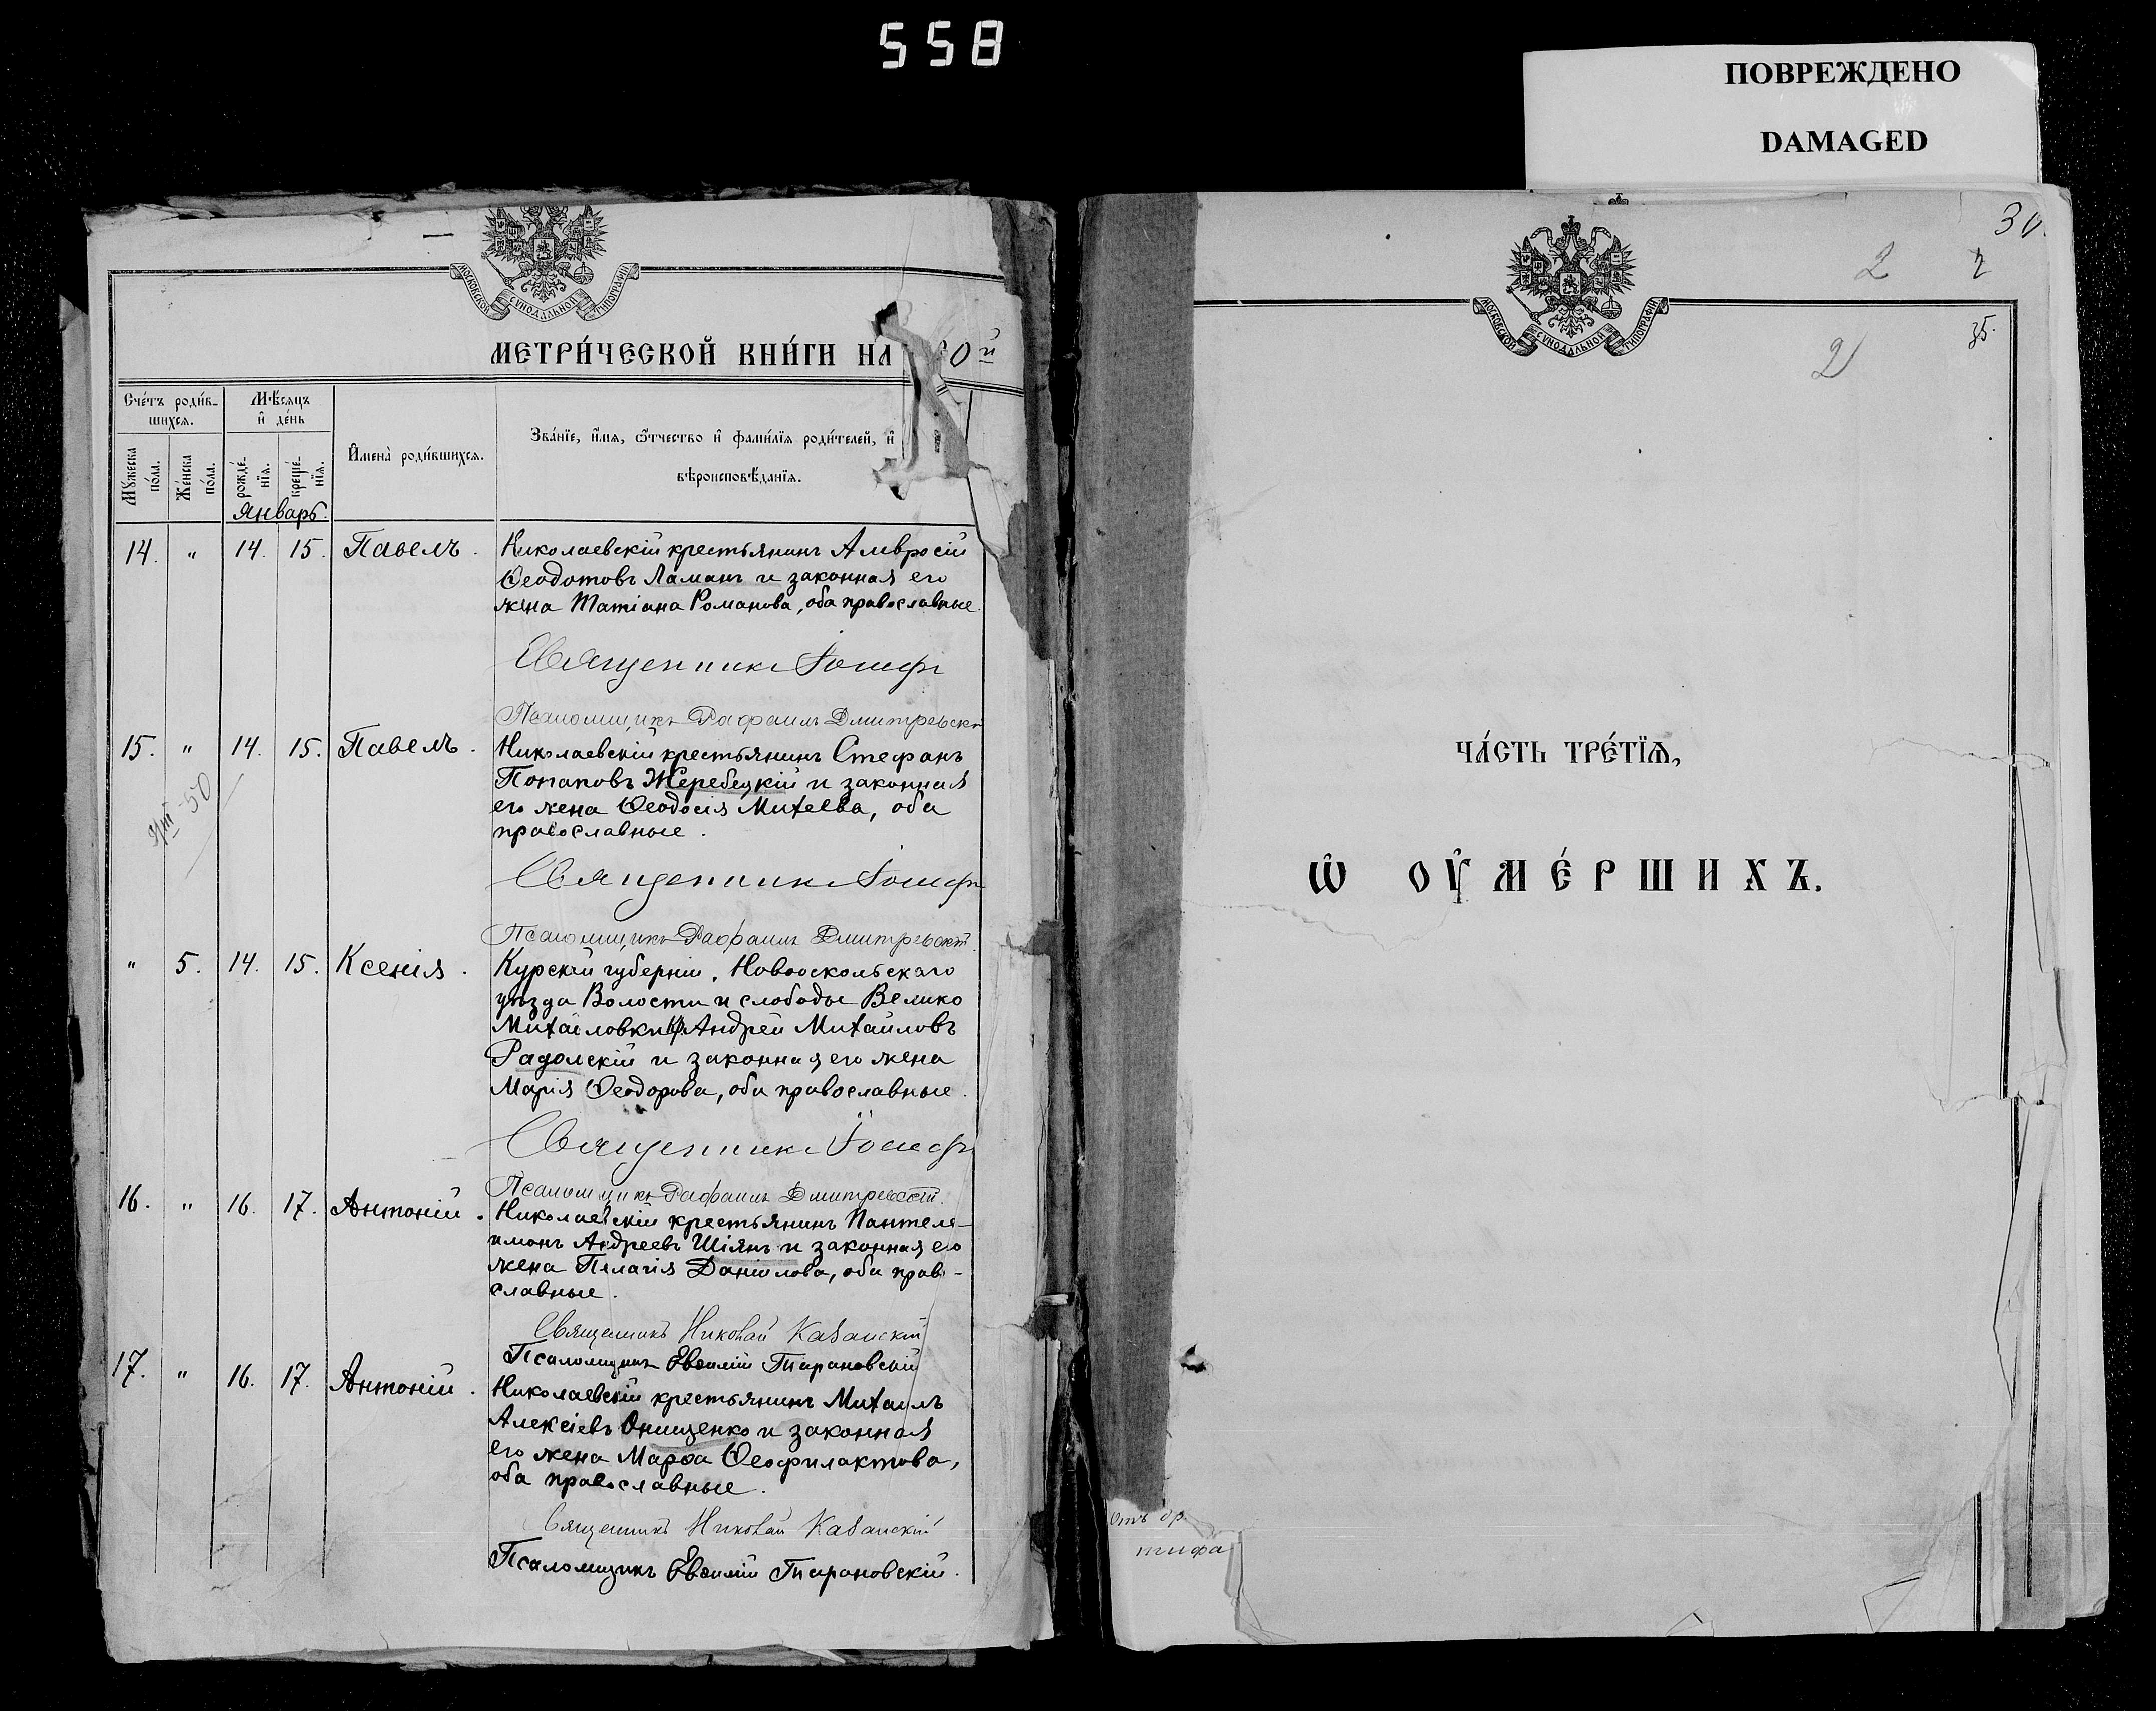 558
ПОВРЕЖДЕНО
DAMAGED
МОСКОВСКОЙ СУНОДАЛЬНОЙ ТИПОГРАФІИ
МЕТРИ́ЧЕСКОЙ КНИ́ГИ НА 0й
Сче́тъ роди́в-
шихся.
Мѣ́сяцъ
и де́нь
Мꙋжеска
по́ла.
Же́нска
по́ла.
рожде́-
нїя.
креще́-
нїя.
Имена̀ роди́вшихся.
Зва́нїе, и́мя, ѻ҆́тчество и фами́лїя роди́телей, и
вѣроисповѣ́данїя.
Январь.
14. " 14. 15. Павелъ.
Николаевскій крестьянинъ Амвросій
Ѳеодотовъ Ламанъ и законная его
жена Татіана Романова, оба православные.
Священникъ Іосифъ
Псаломщикъ Рафаилъ Дмитревскі
15. " 14. 15. Павелъ.
Николаевскій крестьянинъ Стефанъ
Потаповъ Жеребецкій и законная
его жена Ѳеодосія Михеева, оба
православные.
Священникъ Іосифъ
Псаломщикъ Рафаилъ Дмитревскій
" 5. 14. 15. Ксенія.
Курской губерніи, Новооскольскаго
уѣзда Волости и слободы Велико
Михайловки Андрей Михайловъ
Радолскій и законная его жена
Марія Ѳеодорова, оба православные.
Священникъ Іосифъ
Псаломщикъ Рафаилъ Дмитревскій.
16. " 16. 17. Антоній.
Николаевскій крестьянинъ Пантеле-
имонъ Андреевъ Шіянъ и законная его
жена Пелагія Даніилова, оба право-
славные.
Священникъ Николай Казанскій
Псаломщикъ Евѳимій Тарановскій
17. " 16. 17. Антоній.
Николаевскій крестьянинъ Михаилъ
Алексіевъ Онищенко и законная
его жена Марѳа Ѳеофилактова,
оба православные.
Священникъ Николай Казанскій
Псаломщикъ Евѳимій Тарановскій.
2
35.
2
МОСКОВСКОЙ СУНОДАЛЬНОЙ ТИПОГРАФІИ
ЧА́СТЬ ТРЕ́ТЇѦ,
Ѡ҆ ОУ҆МЕ́РШИХЪ.
отъ бр
тифа